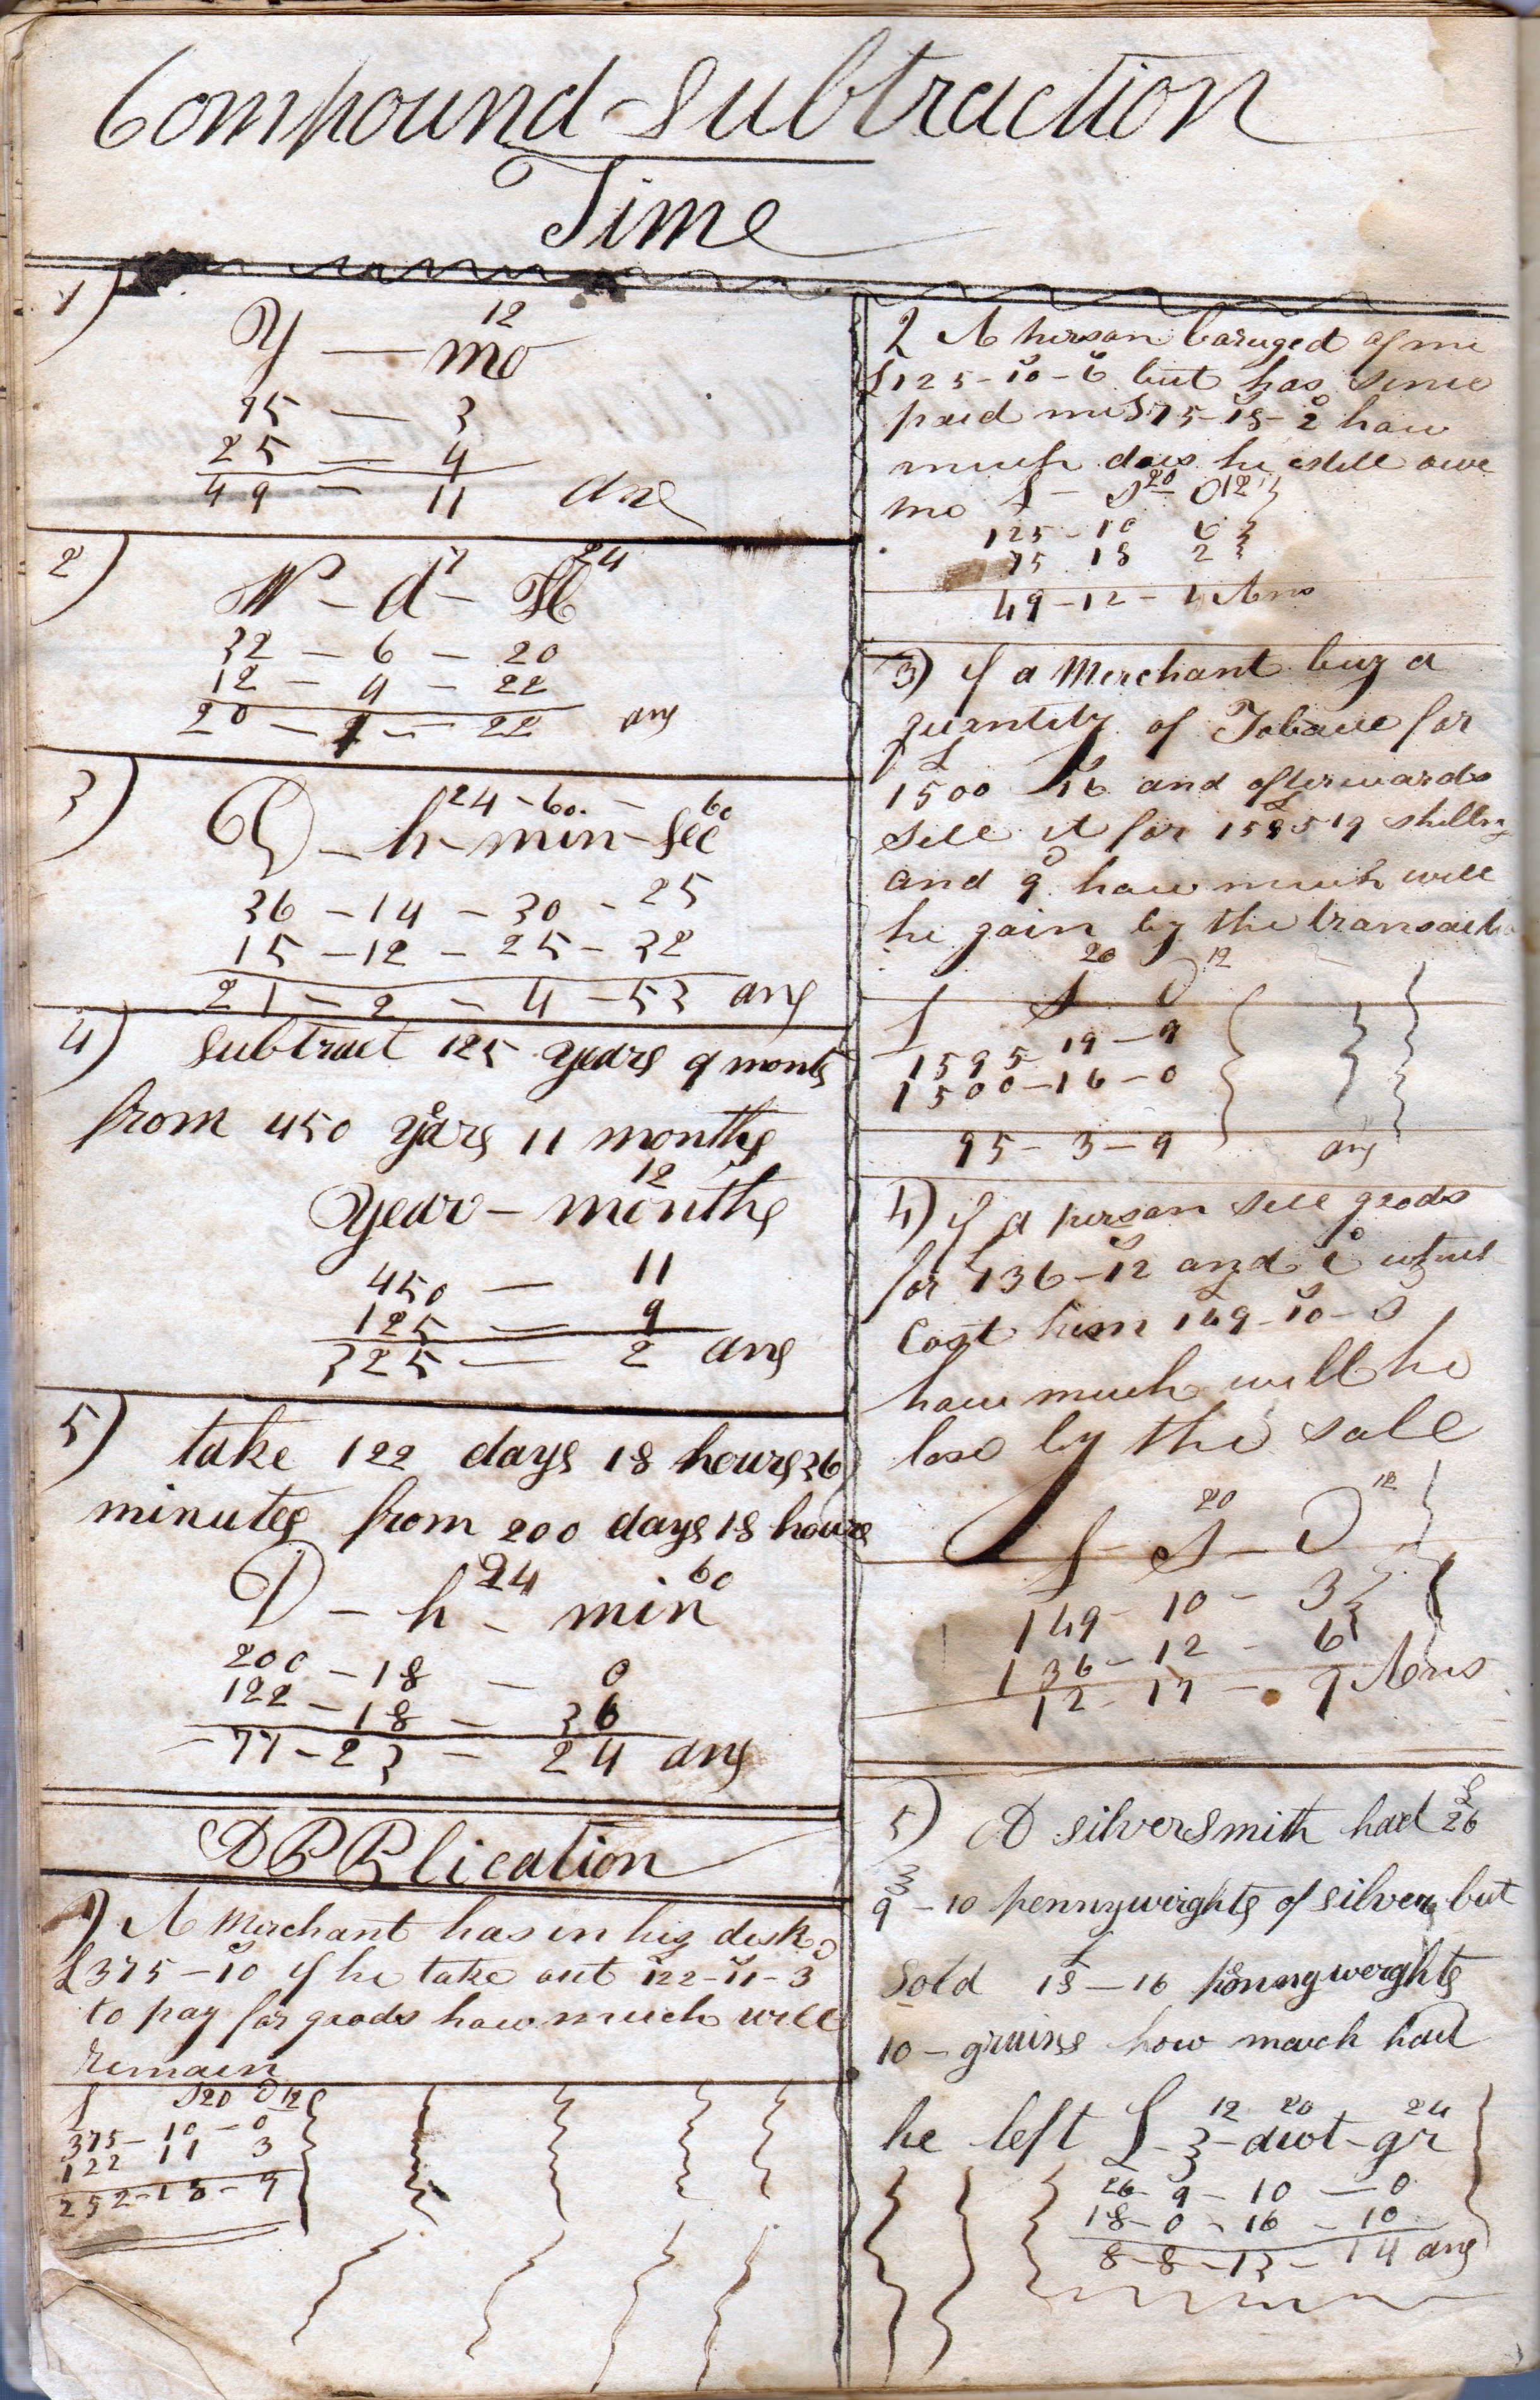 Compound Subtraction
Time
1)
12
Y — mo
75 — 3
25 — 4
49 — 11 ans
2)
7 24
W - d - H
32 - 6 - 20
12 - 4 - 22
20 - 1 - 22 ans
3)
24 - 60 - 60
D - h - min - sec
36 - 14 - 30 - 25
15 - 12 - 25 - 32
21 - 2 - 4 - 53 ans
4) Subtract 125 years 9 months
from 450 years 11 months
12
Year - months
450 — 11
125 — 9
325 — 2 ans
5) take 122 days 18 hours 36
minutes from 200 days 18 hours
24 60
D - h - min
200 - 18 - 0
122 - 18 - 36
77 - 23 - 24 ans
APPlication
1) A Merchant has in his desk
£375 - 10 if he take out 122 - 11 - 3
to pay for goods how much will
remain
£ S20 D12
375 - 10 - 0
122 11 3
252 - 18 - 9
2 A person of me
£125 - 10 - 6 but has since
paid me £75 - 18 - 2 how
much does he still owe
me £ - S20 - D12
125 - 10 6
75 18 2
49 - 12 - 4 Ans
3) if a Merchant buy a
quantity of for
£ S
1500 16 and afterwards
sell it for 1595 19 shillings
and 9 how much will
he gain by the transaction
20 12
£ S D
1595 19 - 9
1500 - 16 - 0
95 - 3 - 9 ans
4) if a person sell goods
for 136 - 12 and 6 what
Cost him 149 - 10 - 3
how much will he
lose by the sale
20 12
£ - S - D
149 - 10 - 3
136 - 12 - 6
12 - 17 - 9 Ans
5) A silversmith had £26
℥9 - 10 pennyweights of silver but
Sold 18 - 16 pennyweights
10 - grains how much had
12 20 24
he left £ - ℥ - dwt - gr
26 - 9 - 10 - 0
18 - 0 - 16 - 10
8 - 8 - 13 - 14 ans